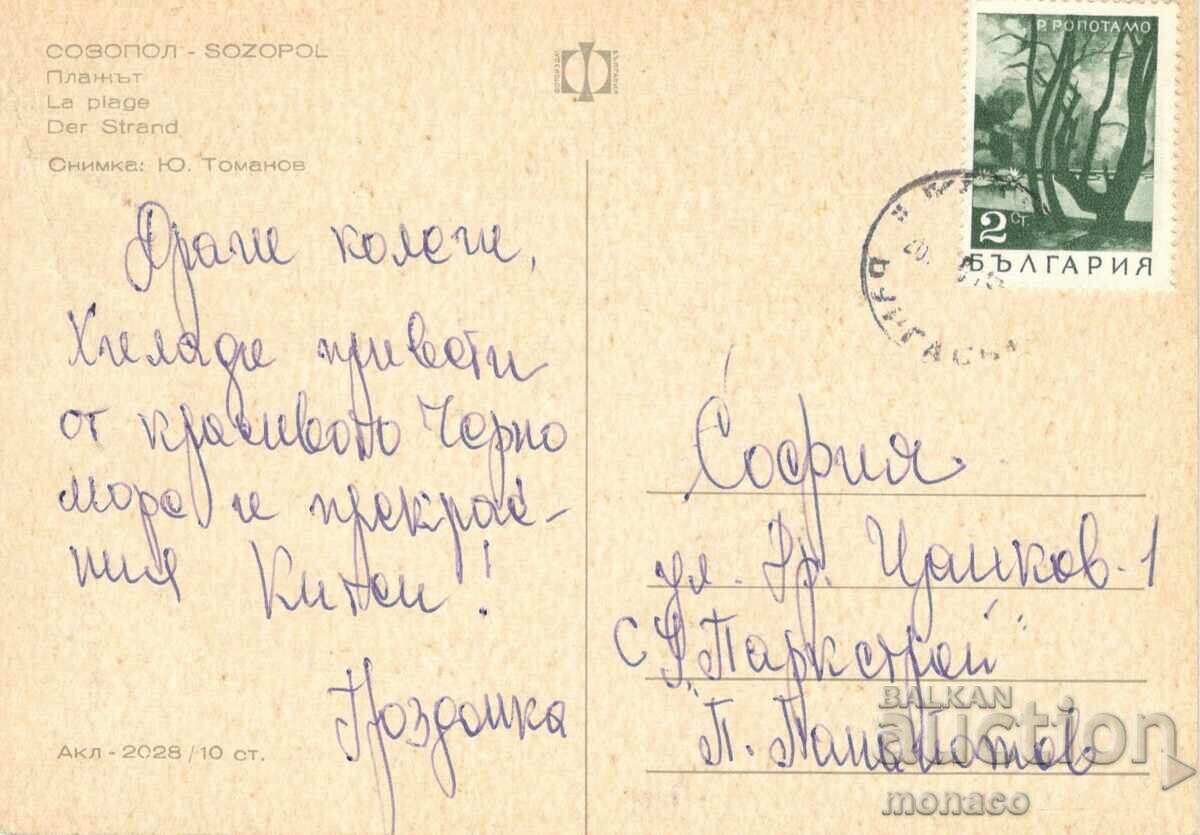 СОЗОПОЛ - SOZOPOL
Плажът
La plage
Der Strand
Снимка: Ю. Томанов
Драги колеги,
Хиляди привети
от красивото Черно
море и прекрас-
ния Китен!
Акл - 2028/10 ст.
Р. РОПОТАМО
2 СТ.
БЪЛГАРИЯ
София
ул. Др. Цанков-1
"Паркстрой"
П. Панайотов
BALKAN
auction
monaco